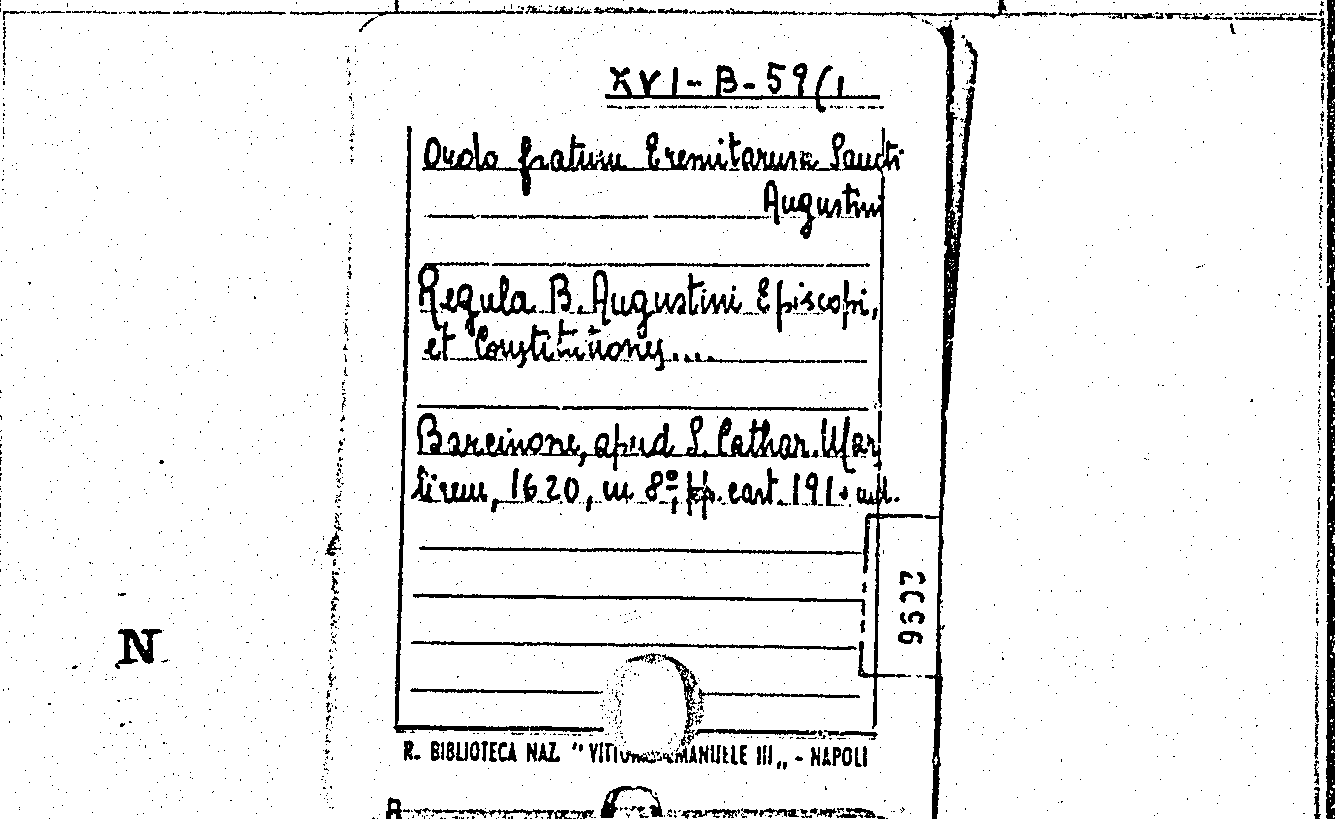 XVI-B-59(1
Ordo fratrum Eremitarum Sancti
Augustini
Regula B. Augustini Episcopi,
et Constitutiones....
Barcinone, apud S. Cathar. Mar
tirem, 1620, in 8º, pp. cart. 191 + ind.
N
R. BIBLIOTECA NAZ. " VITTORIO EMANUELE III „ - NAPOLI